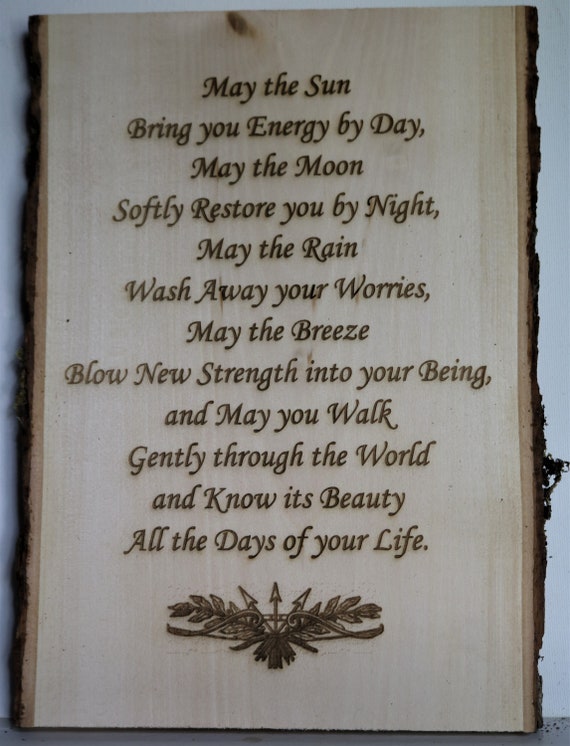 May the Sun
Bring you Energy by Day,
May the Moon
Softly Restore you by Night,
May the Rain
Wash Away your Worries,
May the Breeze
Blow New Strength into your Being,
and May you Walk
Gently through the World
and Know its Beauty
All the Days of your Life.